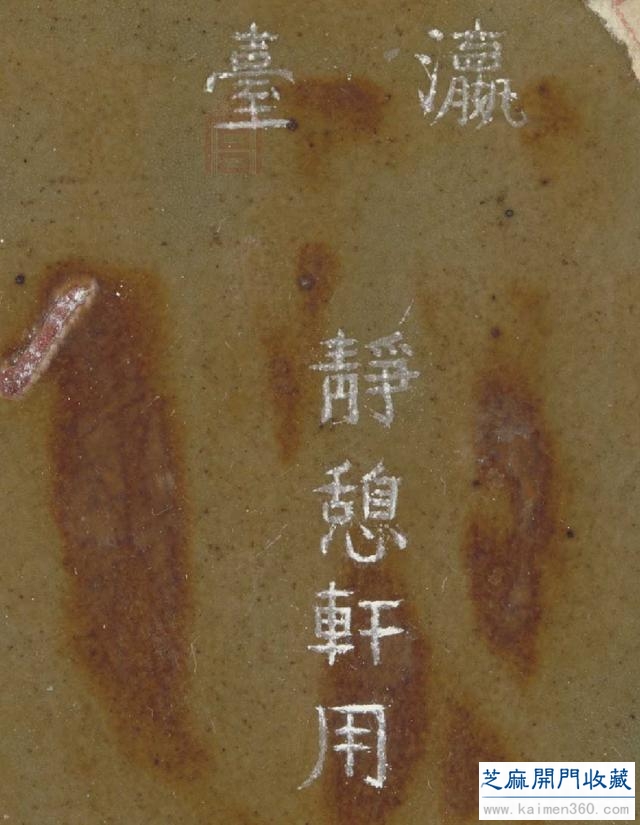 瀛臺
靜憩軒用
芝麻開門收藏
www.kaimen360.com